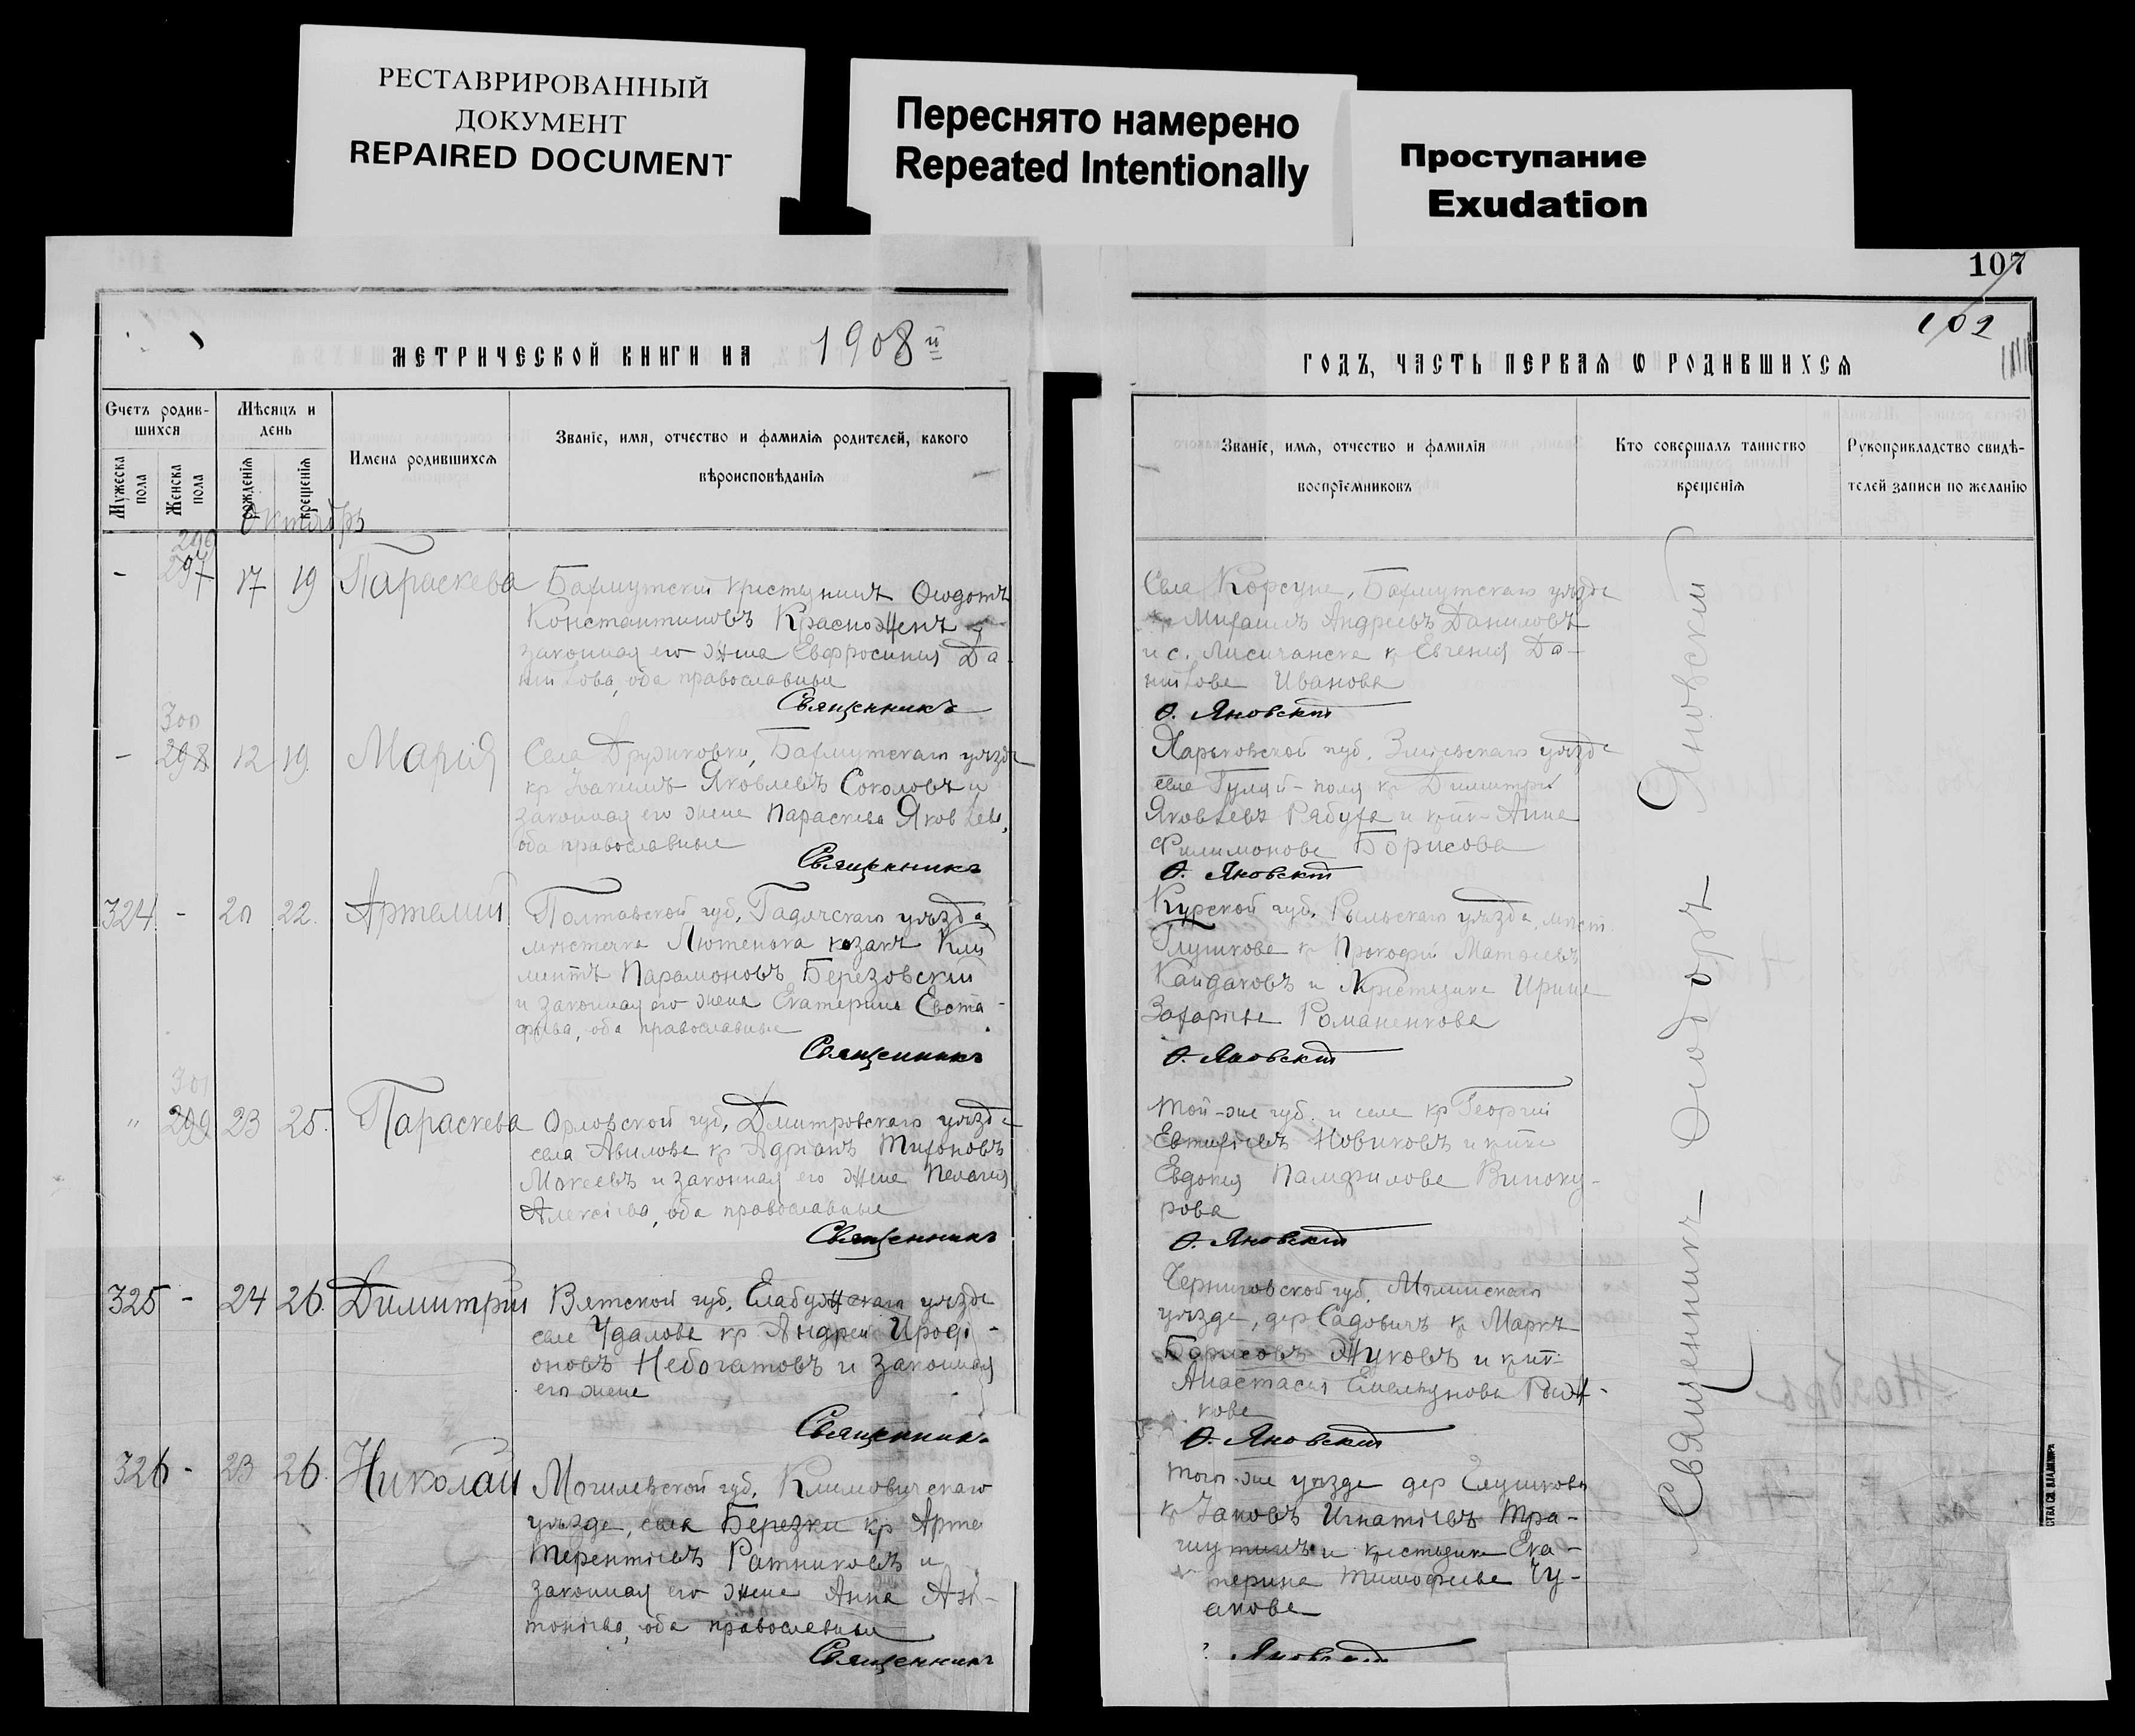 РЕСТАВРИРОВАННЫЙ
ДОКУМЕНТ
REPAIRED DOCUMENT
Переснято намерено
Repeated Intentionally
Проступание
Exudation
МЕТРИЧЕСКОЙ КНИГИ НА 1908 й
Счетъ родив-
шихся
Мужеска
пола
Женска
пола
Мѣсяцъ и
день
рожденія
крещенія
Имена родившихся
Званіе, имя, отчество и фамилія родителей, какого
вѣроисповѣданія
Октябрь
299
- 297 17 19 Параскева Бахмутскій крестьянинъ Ѳеодотъ
Константиновъ Красноженъ и
законная его жена Евфросинія Да-
нилова, оба православные
Священникъ
300
- 298 12 19. Марія Села Дружковки, Бахмутскаго уѣзда
кр Іоакимъ Яковлевъ Соколовъ и
законная его жена Параскева Яковлева,
оба православные
Священникъ
324 - 20 22. Артемій Полтавской губ, Гадячскаго уѣзда
мѣстечка Лютенька козакъ Кли
ментъ Парамоновъ Березовскій
и законная его жена Екатерина Евста-
фьева, оба православные
Священникъ
301
" 299 23 25. Параскева Орловской губ, Дмитровскаго уѣзда
села Авилова кр Адріанъ Тихоновъ
Мокеевъ и законная его жена Пелагія
Алексѣева, оба православные
Священникъ
325 - 24 26. Димитрій Вятской губ, Елабужскаго уѣзда
села Удалова кр Андрей Ироді-
оновъ Небогатовъ и законная
его жена
Священникъ
326 - 23 26. Николай Могилевской губ, Климовичскаго
уѣзда, села Березки кр Арте
Терентіевъ Ратниковъ и
законная его жена Анна Ан-
тоніева, оба православные
Священникъ
107
102
ГОДЪ, ЧАСТЬ ПЕРВАЯ Ѡ РОДИВШИХСЯ
Званіе, имя, отчество и фамилія
воспріемниковъ
Кто совершалъ таинство
крещенія
Рукоприкладство свидѣ-
телей записи по желанію
Села Корсуна, Бахмутскаго уѣзда
кр Михаилъ Андреевъ Даниловъ
и с. Лисичанска кр Евгенія Да-
нилова Иванова
Ѳ. Яновскій
Харьковской губ, Зміевскаго уѣзда
села Гуляй-поля кр Димитрій
Яковлевъ Рябуха и кр-ка Анна
Филимонова Борисова
Ѳ. Яновскій
Курской губ, Рыльскаго уѣзда, мѣст.
Глушкова кр Прокофій Матвѣевъ
Кайдаковъ и Крестьянка Ирина
Захаріева Романенкова
Ѳ. Яновскій
Той-же губ. и села кр Георгій
Евтихіевъ Новиковъ и кр-ка
Евдокія Памфилова Виноку-
рова
Ѳ. Яновскій
Черниговской губ, Мглинскаго
уѣзда, дер Садовичъ кр Маркъ
Борисовъ Жуковъ и кр-ка
Анастасія Емельянова Рыж-
кова
Ѳ. Яновскій
Того-же уѣзда дер Глушкова
кр Іаковъ Игнатіевъ Тра-
шутинъ и крестьянка Ека-
терина Тимофеева Чу-
акова
Яновскій
Священникъ Ѳеодоръ Яновскій